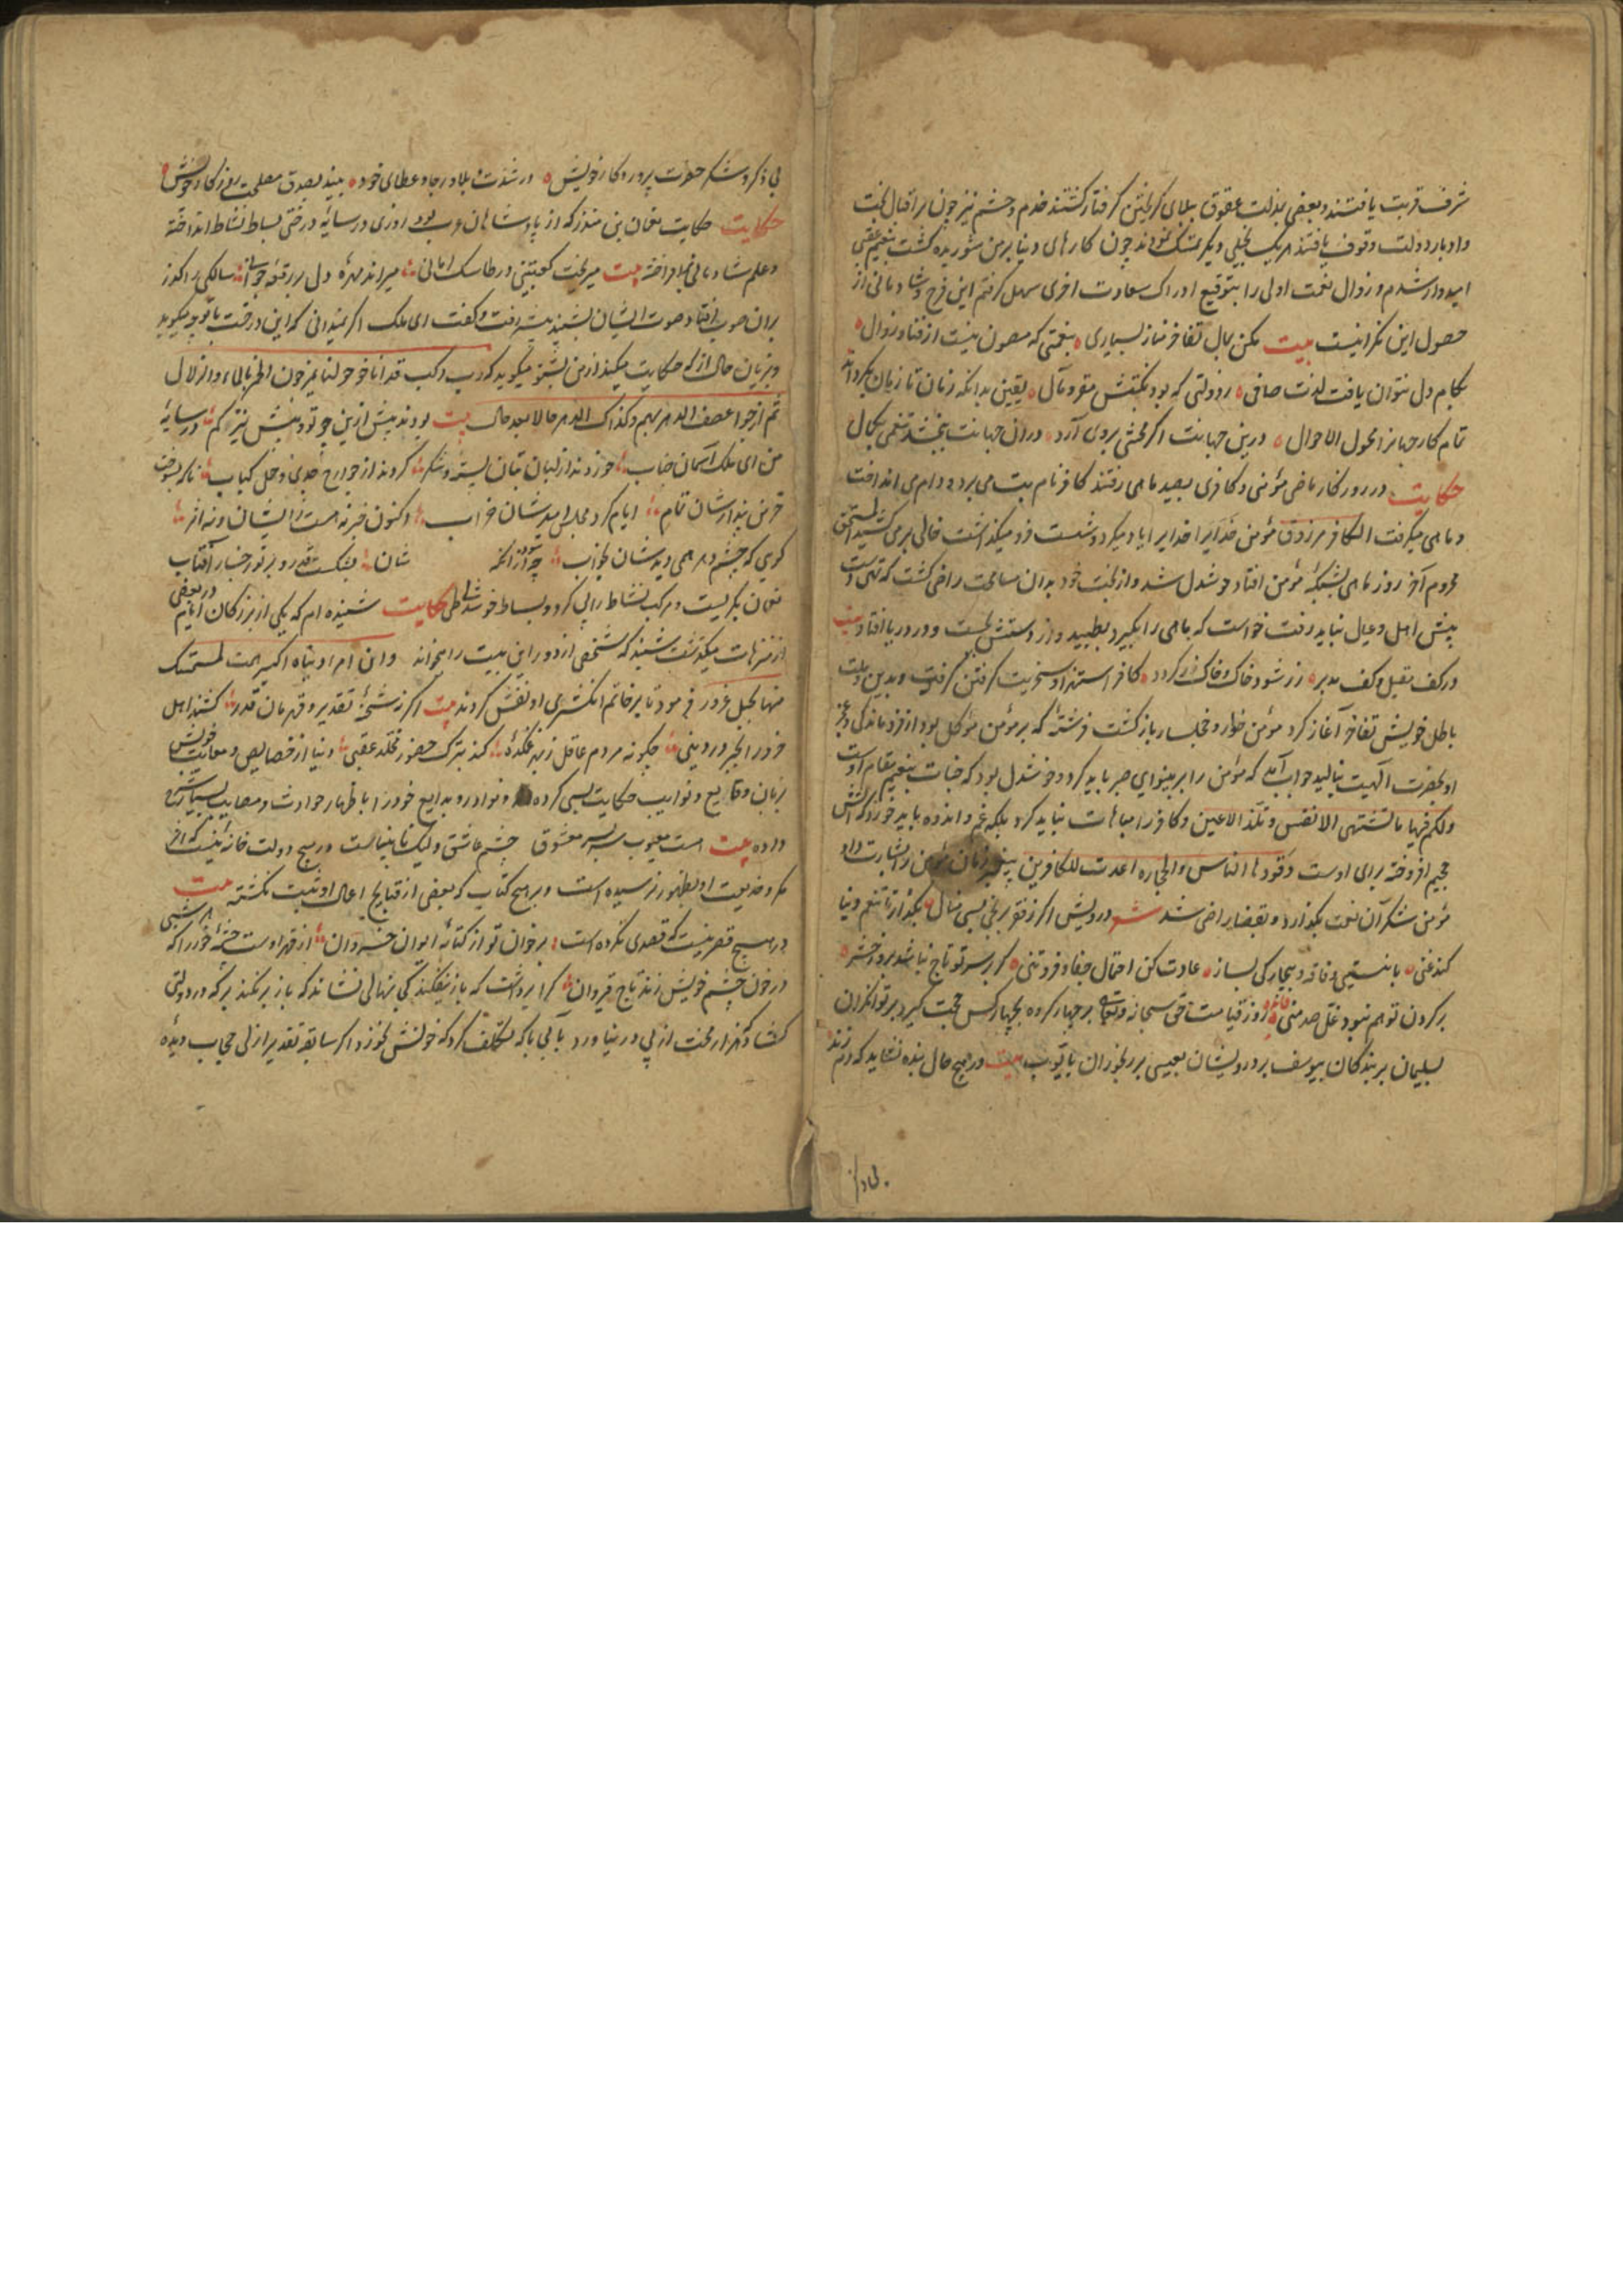 شرف قربت یافتند و بعضی بذلت عقوق ببلای گریختن گرفتار گشتند خدم و حشم نیز چون بر اقبال بخت
و ادبار دولت وقوف یافتند هر یک بحیلی دیگر تمسک نمودند چون کارهای دنیا برمن شوریده گشت بنعیم عقبی
امیدوار شدم و زوال نعمت اولی را بتوقیع ادراک سعادت اخری سهل گرفتم این فرح و شادمانی از
حصول این فکرانیست بیت مکن بمال تفاخر مناز بسیاری بنعمتی که مصون نیست از فنا و زوال
بکام دل نتوان یافت لذت صافی ز دولتی که بود نکبتش مقر و مآل یقین بدانکه زمان تا زمان بگرداند
تمام کار جهانرا محول الاحوال درین جهانت اگر محنتی بروی آرد در آن جهانت ببخشد تنعمی بکمال
حکایت در روزگار ماضی مؤمنی و کافری بصید ماهی رفتند کافر نام بت می برد و دام می انداخت
و ماهی میگرفت الکافر مرزوق مؤمن خدایرا یاد میکرد و شست فرو میگذاشت خالی بر می کشید المستحق
محروم آخر روز ماهی بشبکه مؤمن افتاد خوشدل شد و از بخت خود بدان مسامحت راضی گشت که تهی دست
پیش اهل و عیال نباید رفت خواست که ماهی را بگیرد بطپید و از دستش بجست و در دریا افتاد بیت
در کف مقبل و کف مدبر زر شود خاک و خاک زر گردد کافر استهزا و سخریت گرفتن گرفت و بدین ملت
باطل خویش تفاخر آغاز کرد مؤمن خوار و خجلسار بازگشت فرشته که بر مؤمن موکل بود از فروماندگی و عجز
او بحضرت الهیت بنالید جواب آمد که مؤمن را بر بینوایی صبر باید کرد و خوشدل بود که جنات بنعیم مقام اوست
ولکم فیها ما تشتهی الانفس و تلذ الاعین و کافر را مباهات نباید کرد بلکه غم و اندوه باید خورد که آتش
جحیم افروخته برای اوست وقودها الناس والحجاره اعدت للکافرین پیغمبر زمان مؤمن را بشارت داد
مؤمن شکر آن نعمت بگذارد و بقضا راضی شد شعر درویش اگر ز فقر برنجی بسی منال بگذار تا تنعم دنیا
کند غنی با نیستی و فاقه و بیچارگی بساز عادت کن احتمال جفا و فروتنی گر بر سر تو تاج نباشد بروز حشر
بر گردن تو هم نبود غل صد منی فائده روز قیامت حق سبحانه و تعالی بر چهار گروه بچهار کس حجت گیرد بر توانگران
بسلیمان بر بندگان بیوسف بر درویشان بعیسی بر رنجوران بایوب بیت در هیچ حال بنده نشاید که دم زند
بی ذکر و شکر حضرت پروردگار خویش در شدت بلا و رجا و عطای خود بیند بصدق مصلحت روزگار خویش
حکایت حکایت نعمان بن منذر که از پادشاهان عرب بود روزی در سایه درختی بساط نشاط انداخته
و علم شادمانی برافراخته بیت میریخت کعبتین در طاسک امانی میراند مهره دل بر رقعه جوانی سالکی را گذر
بر آن صوب افتاد و صوت ایشان بشنید پیش رفت و گفت ای ملک اگر میدانی که این درخت با تو چه میگوید
و بزبان حال از که حکایت میکند از من بشنو میگوید که رب رکب قد اناخوا حولنا یمزجون الخمر بالماء الزلال
ثم اضحوا عصف الدهر بهم و کذاک الدهر حالا بعد حال بیت بودند پیش ازین چو تو و پیش نیز کم در سایه
من ای ملک آسمان جناب خوردند از لبان بتان پسته و شکر کردند از جوارح جدی و حمل کباب ناگه بسوخت
خرمن پندارشان تمام ایام کرد مجلس امیدشان خراب اکنون خبر نه است ز ایشان و نه اثر
گویی که چشم دهر همی دیدشان بخواب چه سود از آنکه شان بشکست قدر و پرتو رخسار آفتاب
نعمان بگریست و مرکب نشاط را پی کرد و بساط خوشدلی طی حکایت شنیده ام که یکی از بزرگان ایام در بعضی
از متنزهات میگذشت شنید که شخصی از دور این بیت را میخواند وان امرا دنیاه اکبر همه لمستمسک
منها بحبل غرور فرمود تا بر خاتم انگشتری او نقش کردند بیت اگر نه شحنه تقدیر و قهرمان قدر کشند اهل
خرد را بجبر در دینی چگونه مردم عاقل زید غمکده کند بترک حضور مخلد عقبی دنیا از خصایص و معایب خویش
بزبان وقایع و نوایب حکایت بسی کرده و نوادر و بدایع خود را باظهار حوادث و مصایب بسیار شرح
داده بیت است معیوب بسی معشوق چشم عاشق ولیک نابیناست در هیچ دولت خانه نیست که اثر
مکر و خدیعت او بظهور نرسیده است و بر هیچ کتاب که بعضی از قبایح اعمال او ثبت نگشته بیت
در هیچ قصر نیست که قصدی نکرده است برخوان تو از کتابه ایوان خسروان از قهر اوست خفته خوزرا که هر شبی
در خون چشم خویش زند تاج قیروان کرا برداشت که باز نیفکند کی نهالی نشاند که باز بر نکند بر که در دولتی
گشاد که هزار محنت از پی در نیاورد با کی باکه تکلف کرد که خونش نخورد اگر سابقه تقدیر ازلی حجاب دیده